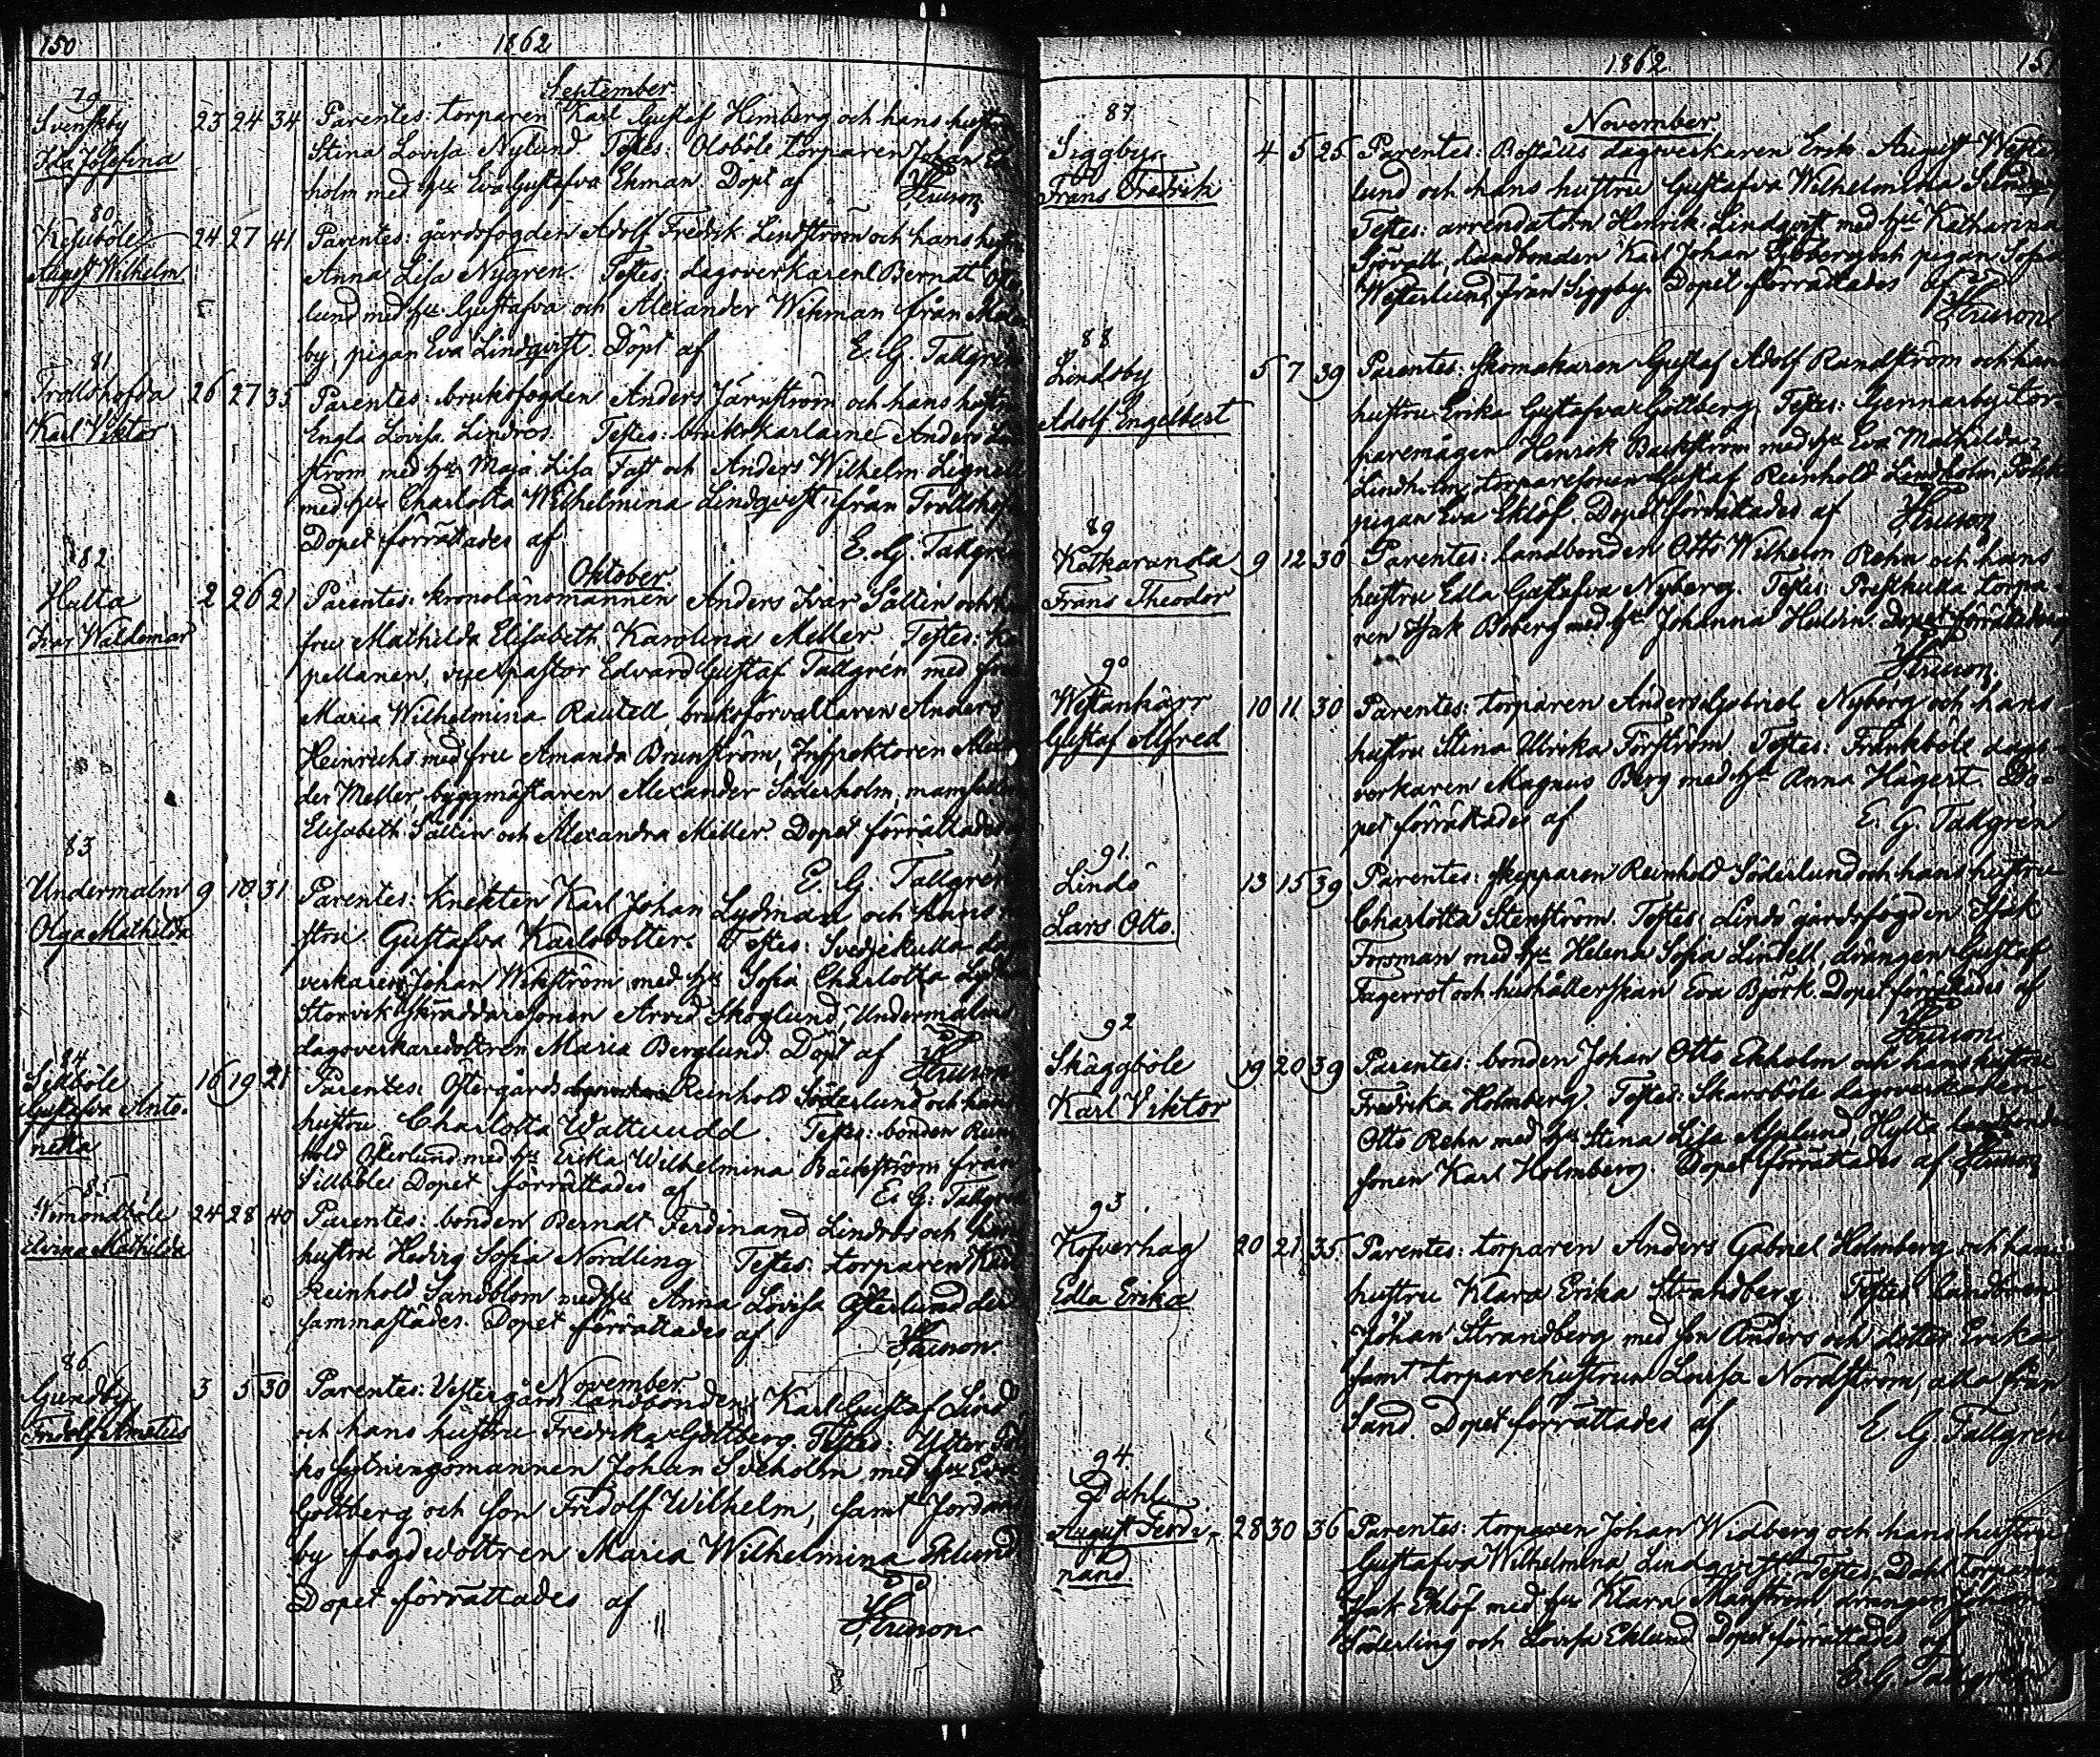 150 1862
September
79
Svenskby 23 24 34 Parentes: torparen Karl Gustaf Himberg och hans hustru
Ida Josefina Stina Lovisa Nylund Testes: Olsböle torparen Johan
holm med hu Eva Gustafva Ekman. Döpt af
80
24 27 41 Parentes: gårdsfogden Adolf Fredrik Lindström och hans hustru
August Wilhelm Anna Lisa Nygren. Testes: dagsverkaren Berndt
lund med hu Gustafva och Alexander Wikman från
by, pigan Eva Lindqvist. Döpt af E. G. Tallgren
81
Trollshofda 26 27 35 Parentes: bruksfogden Anders Järnström och hans hustru
Karl Viktor Engla Lovisa Lindros. Testes: brukskarlarne Anders
ström med hu Maja Lisa Fast och Anders Wilhelm
med hu Charlotta Wilhelmina Lindqvist från
Dopet förrättades af E. G. Tallgren
Oktober
82
Halta 2 26 21 Parentes: kronolänsmannen Anders Ivar Sallin och
Ivar Waldemar fru Mathilda Elisabeth Karolina Meller Testes: ka
pellanen, vicepastor Edvard Gustaf Tallgrén med fru
Maria Wilhelmina Rautell, bruksförvaltaren Anders
Heinrichs med fru Amanda Brunström, Inspektoren
der Meller, byggmästaren Alexander Söderholm, mamsell
Elisabeth Sallin och Alexandra Meller. Dopet förrättades
E. G. Tallgrén
83
Undermalm 9 10 31 Parentes: knekten Karl Johan Lydman och hans
Olga Mathilda stru Gustafva Karlsdotter. Testes: Svedjekulla
verkaren Johan Wikström med hu Sofia Charlotta
Storvik skräddaresonen Arvid Skoglund, Undermalms
dagsverkaredottren Maria Berglund. Döpt af
84
16 19 21 Parentes: Östergårds Reinhold Söderlund och hans
Gustafva Anto- hustru Charlotta Wattrudd. Testes: bonden Rein
netta hold Österlund med hu Erika Wilhelmina Bäckström från
Sillböle. Dopet förrättades af E. G. Tallgren
85
24 28 40 Parentes: bonden Berndt Ferdinand Lindros och hans
Mathilda hustru Hedvig Sofia Nordling Testes: torparen Karl
Reinhold Sandblom med hu Anna Lovisa Österlund der
sammastädes. Dopet förrättades af
November
86
Gundby 3 5 30 Parentes: Vestergårds landbonden Karl Gustaf Lind
Fridolf Ametus och hans hustru Fredrika Gottberg. Testes:
Johan Sveholm med hu Eva
Gottberg och son Fridolf Wilhelm, samt Jordan
by fogdedottren Maria Wilhelmina Eklund
Dopet förrättades af
1862 151
November
87
Siggby 4 5 25 Parentes: Boställs dagsverkaren Erik August Wester
Frans Fredrik lund och hans hustru Gustafva Wilhelmina
Testes: arrendatorn Henrik Lindqvist med hu Katharina
Sjövall, landbonden Karl Johan Sjöberg och pigan Sofia
Westerlund från Siggby. Dopet förrättades af
88
Lindsby 5 7 39 Parentes: skomakaren Gustaf Adolf Randström och hans
Adolf Engelbert hustru Erika Gustafva Gottberg. Testes: Gennarby tor-
paremågen Henrik Backström med hu Eva Mathilda
Lindholm, torparesonen Gustaf Reinhold Lindholm,
pigan Eva Eklöf. Dopet förrättades af
89
Kalkaranda 9 12 30 Parentes: landbonden Otto Wilhelm Rehn och hans
Frans Theodor hustru Edla Gustafva Nyberg. Testes: Prestkulla torpa-
ren Isak Boberg med hu Johanna Hulvin. Dopet förrättades
90
Wettankärr 10 11 30 Parentes: torparen Anders Gabriel Nyberg och hans
Gustaf Alfred hustru Stina Ulrika Förström Testes: Frankböle dags-
verkaren Magnus Berg med hu Anna Hägert. Do-
pet förrättades af E. G. Tallgren
91
Lindö 13 15 39 Parentes: skepparen Reinhold Söderlund och hans hustru
Lars Otto Charlotta Stenström. Testes: Lindö gårdsfogden Isak
Forsman med hu Helena Sofia Lindell, drängen Gustaf
Fagerrot och hushållerskan Eva Björk. Dopet förrättades af
92
Skäggböle 19 20 39 Parentes: bonden Johan Otto Ekholm och hans hustru
Karl Viktor Fredrika Holmberg. Testes: Skarsböle dagsverkaren
Otto Rehn med hu Stina Lisa Asplund, Hylta landbonde
sonen Karl Holmberg. Dopet förrättades af
93
Kofverhag 20 21 35 Parentes: torparen Anders Gabriel Holmberg och hans
Edla Erika hustru Klara Erika Strandberg. Testes
Johan Strandberg med son Anders och dotter Erika,
samt torparehustrun Lovisa Nordström, alla från
Sand. Dopet förrättades af E. G. Tallgren
94
Dahl
August Ferdi- 28 30 36 Parentes: torparen Johan Widberg och hans hustru
nand Gustafva Wilhelmina Lindqvist. Testes, Dahl torparen
Isak Eklöf med hu Klara Manström, drängen Johan
Söderling och Lovisa Eklund Dopet förrättades af
E. G. Tallgren